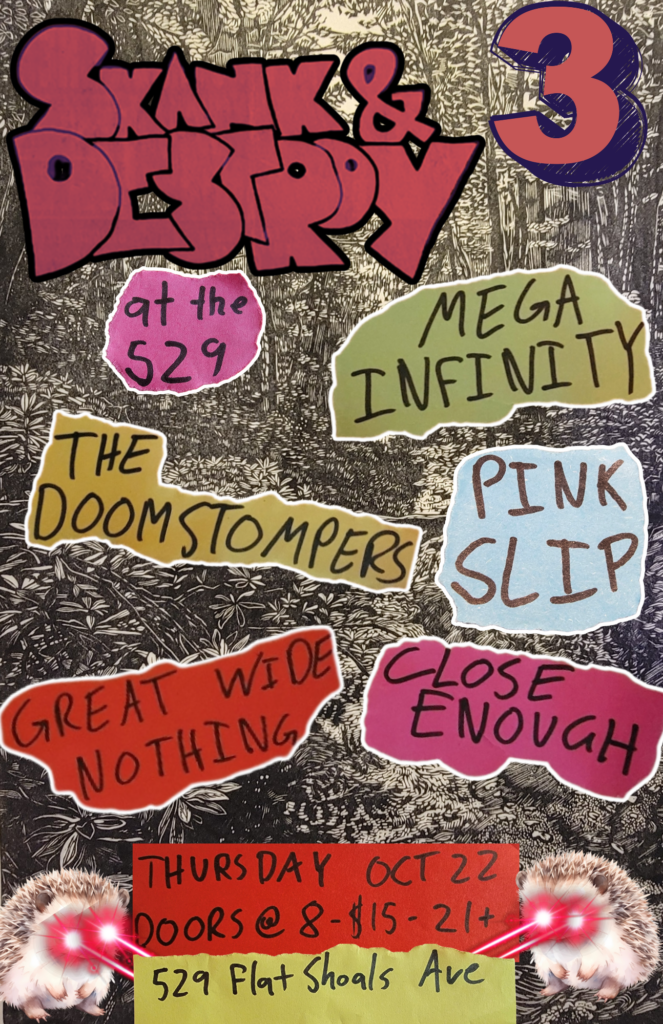 SKANK &
DESTROY
3
at the
529
MEGA
INFINITY
THE
DOOMSTOMPERS
PINK
SLIP
GREAT WIDE
NOTHING
CLOSE
ENOUGH
THURSDAY OCT 22
DOORS @ 8 - $15 - 21+
529 Flat Shoals Ave